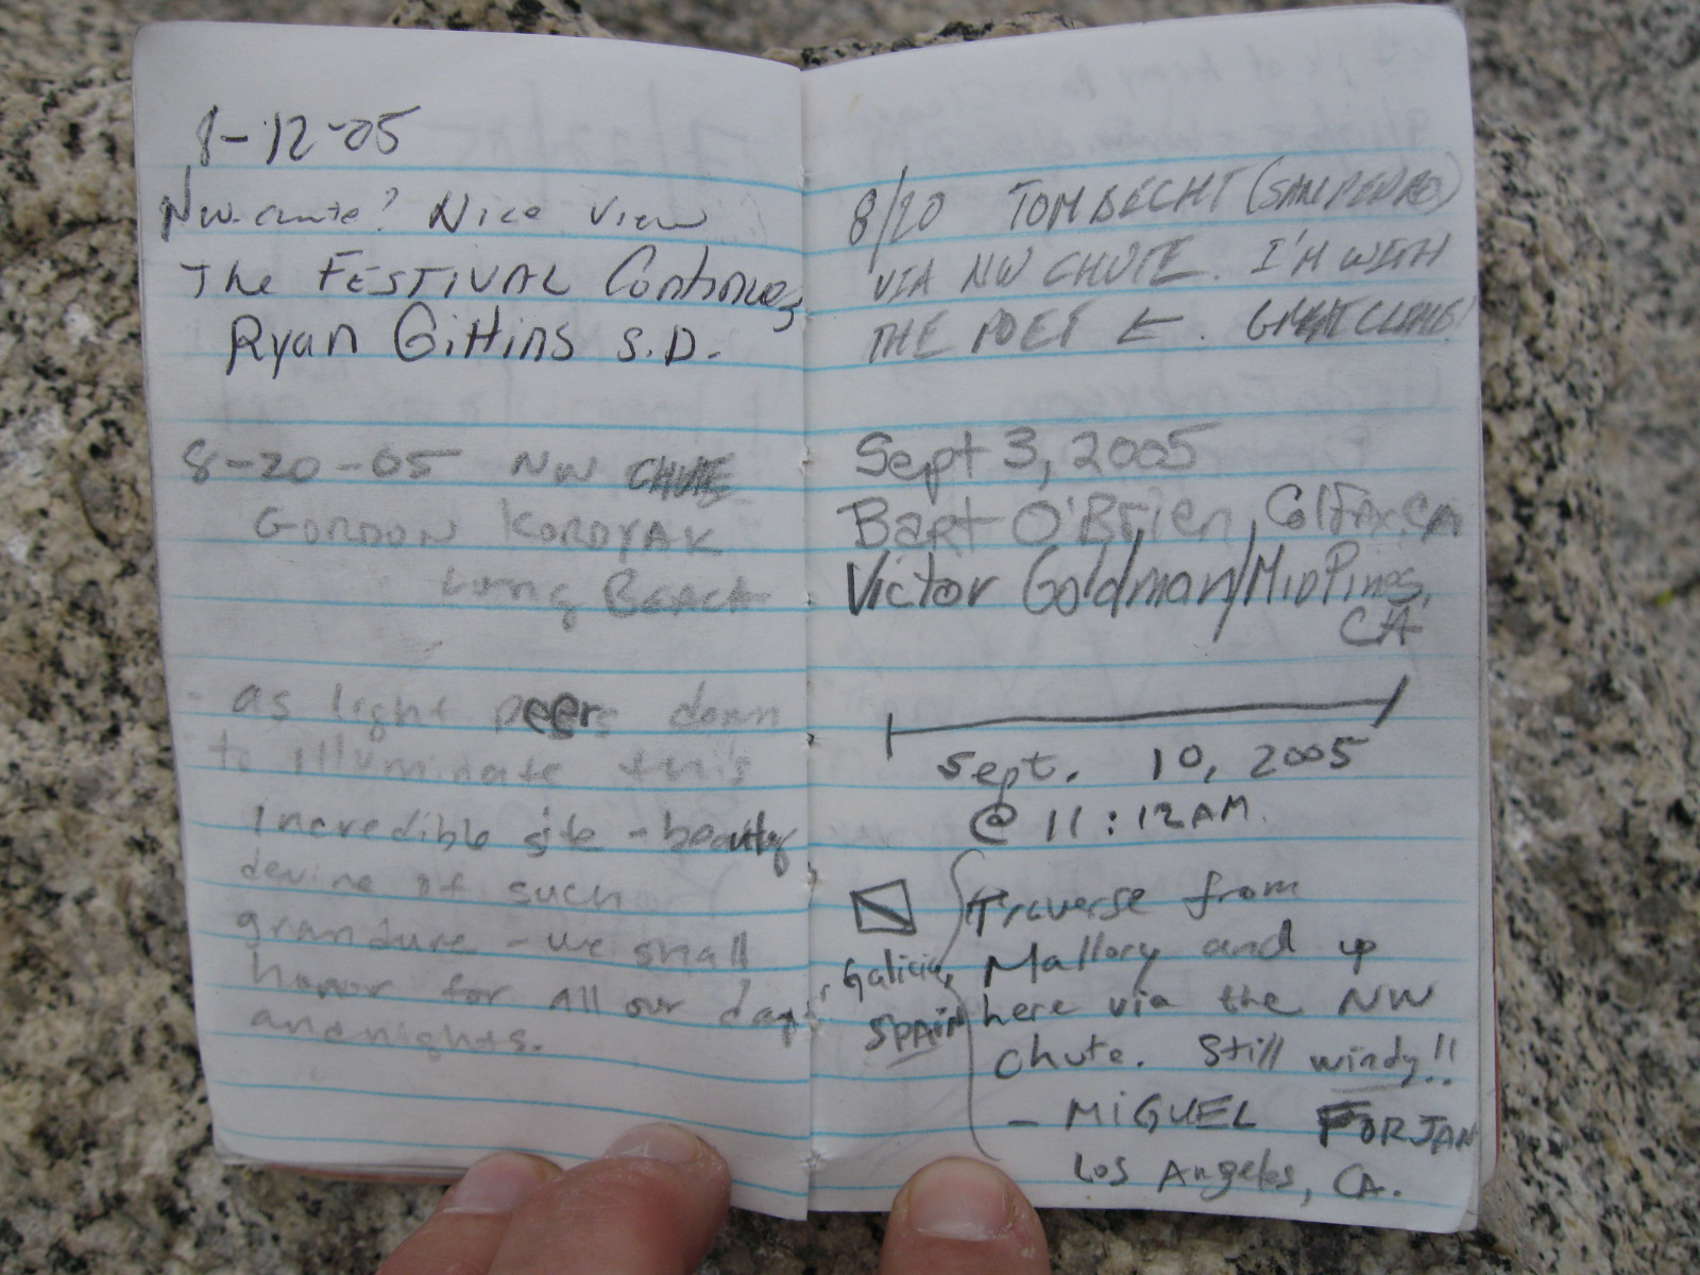 8-12-05
NW. chute? Nice View
The FESTIVAL Continues
Ryan Gittins S.D.
8-20-05 NW CHUTE
GORDON KORDYAK
Long Beach
- as light peers down
to illuminate this
incredible site - beauty
devine of such
grandure - we shall
honor for all our days
and nights.
8/20 TOM BECHT (SAN PEDRO)
VIA NW CHUTE. I'M WITH
THE POET ←. GREAT CLIMB!
Sept 3, 2005
Bart O'Brien, Colfax, CA
Victor Goldman/MidPines,
CA
Sept. 10, 2005
@ 11:12 AM.
Traverse from
Mallory and up
here via the NW
chute. Still windy!!
- MIGUEL FORJAN
Los Angeles, CA.
Galicia,
SPAIN